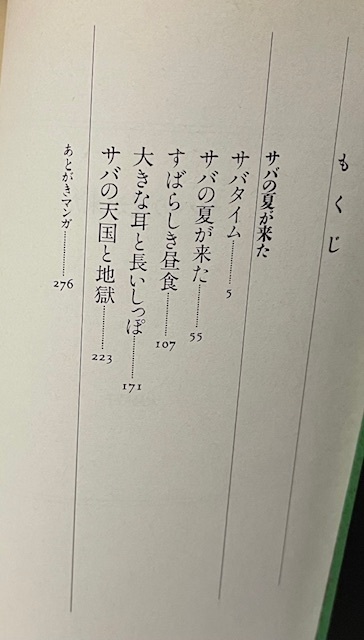 もくじ
サバの夏が来た
サバタイム…………5
サバの夏が来た…………55
すばらしき昼食…………107
大きな耳と長いしっぽ…………171
サバの天国と地獄…………223
あとがきマンガ…………276